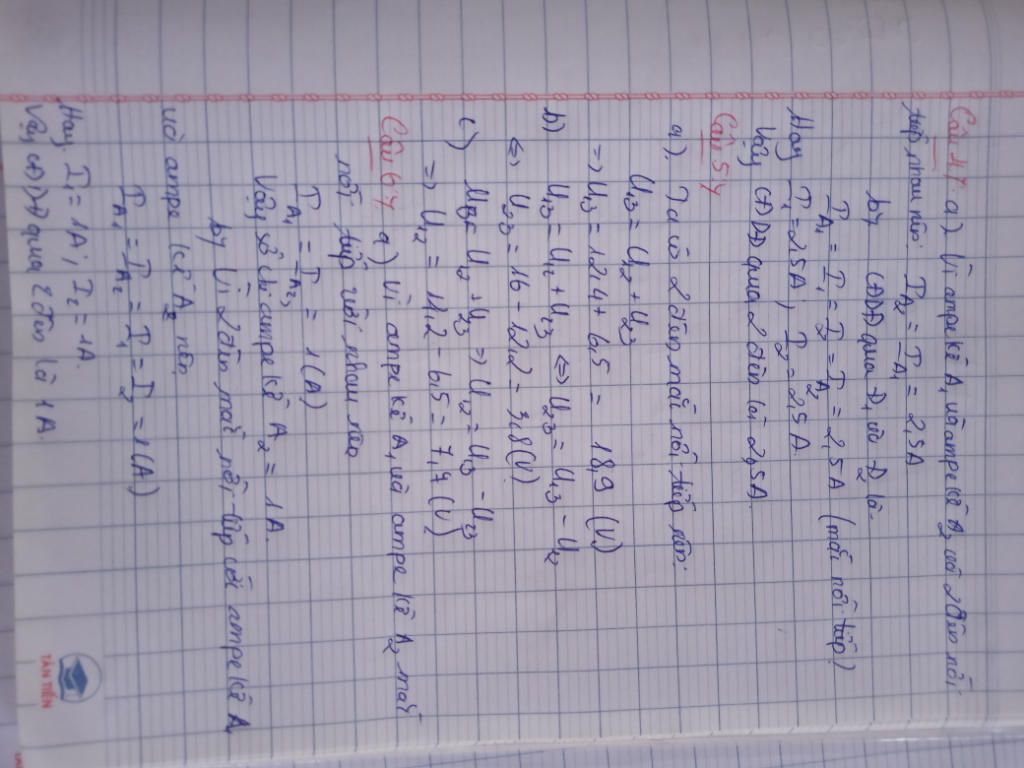 Câu 4: a) Vì ampe kế A1 và ampe kế A2 và 2 đèn nối
tiếp nhau nên: I_A2 = I_A1 = 2,5A
b, CĐDĐ qua Đ1 và Đ2 là:
I_A1 = I1 = I2 = I_A2 = 2,5A (mối nối tiếp)
Hay I1 = 2,5A; I2 = 2,5A.
Vậy CĐDĐ qua 2 đèn là 2,5A.
Câu 5:
a). Ta có 2 đèn mắc nối tiếp nên:
U13 = U12 + U23
=> U13 = 12,4 + 6,5 = 18,9 (V)
b) U13 = U12 + U23 <=> U23 = U13 - U12
<=> U23 = 16 - 12,2 = 3,8 (V)
c) U13 = U12 + U23 => U12 = U13 - U23
=> U12 = 11,2 - 6,5 = 7,7 (V)
Câu 6: a) Vì ampe kế A1 và ampe kế A2 mắc
nối tiếp với nhau nên
I_A1 = I_A2 = 1 (A)
Vậy số chỉ ampe kế A2 = 1A.
b, Vì 2 đèn mắc nối tiếp với ampe kế A1
và ampe kế A2 nên
I_A1 = I_A2 = I1 = I2 = 1 (A)
Hay I1 = 1A; I2 = 1A.
Vậy CĐDĐ qua 2 đèn là 1A.
TÂN TIẾN